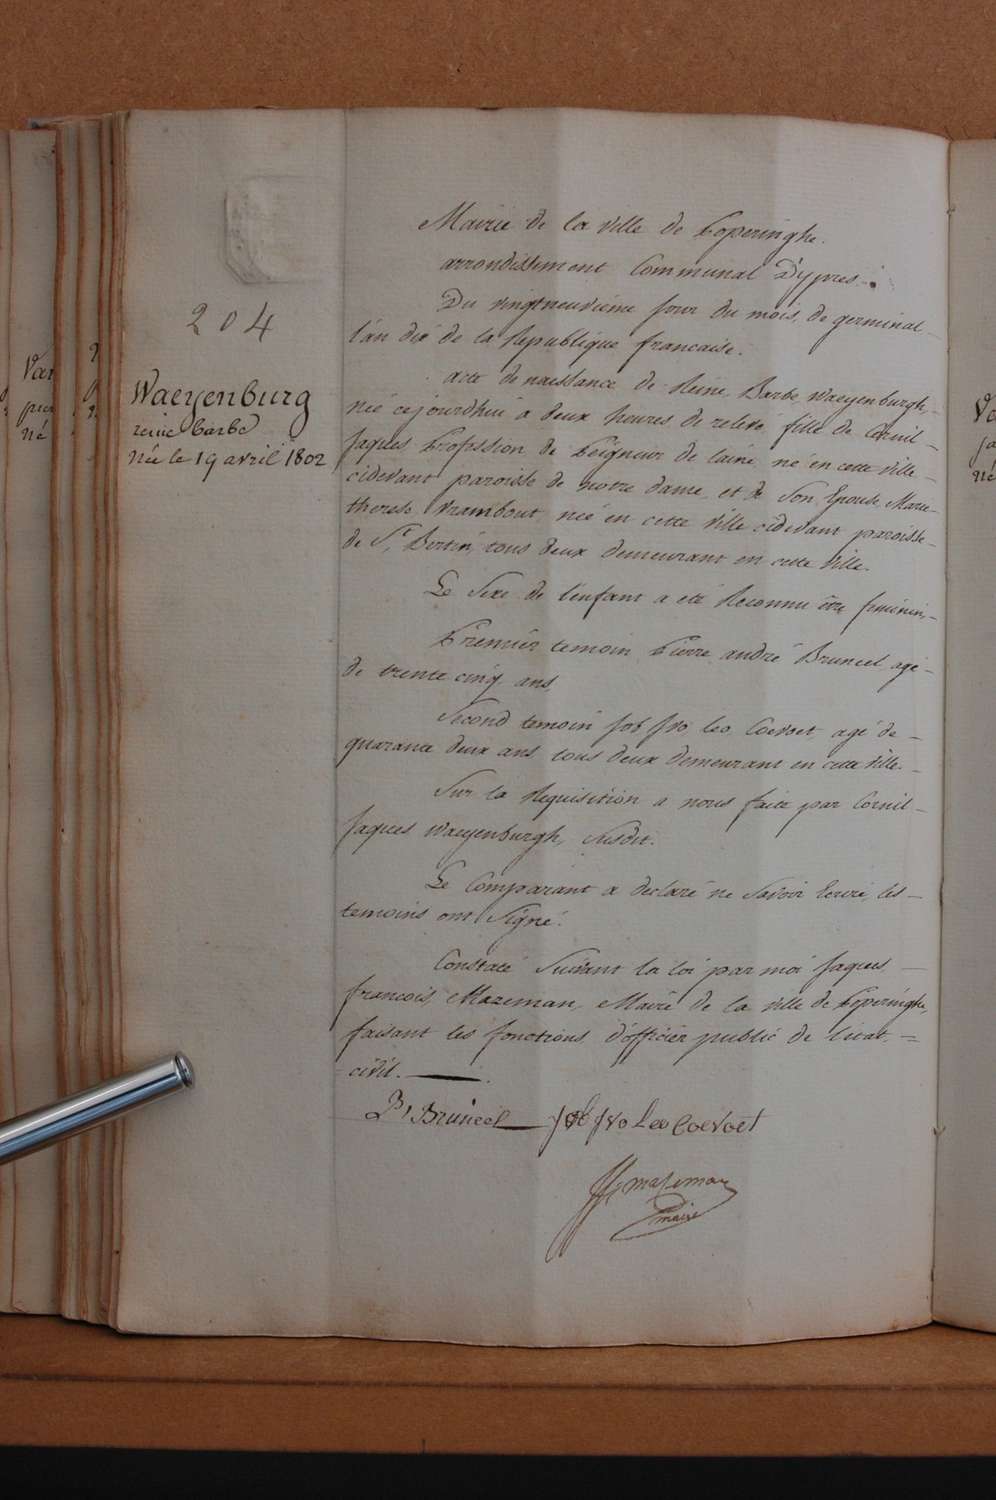 204
Waeyenburg
reine barbe
née le 19 avril 1802
Mairie de la ville de Poperinghe.
arrondissement Communal D'ypres.
Du vingtneuvième jour du mois de germinal
l'an dix de la Republique francaise.
acte de naissance de Reine Barbe Waeyenburgh,
née cejourdhui a deux heures de relevé fille de Cornil
Jaques Profession de Peigneur de laine né en cette ville
cidevant paroisse de notre dame et de Son Epouse Marie
therese Vrambout née en cette ville cidevant paroisse
de St. Bertin, tous deux demeurant en cette Ville.
Le Sexe de l'enfant a eté Reconnu être feminin,
Premier temoin Pierre andré Bruneel agé
de trente cinq ans
Second temoin Job fro Leo Coevoet agé de
quarante deux ans tous deux demeurant en cette Ville.
Sur la Requisition a nous faite par Cornil
Jaques Waeyenburgh, Susdit.
Le Comparant a declaré ne Savoir Ecrire, les
temoins ont Signé.
Constaté Suivant la loi par moi Jaques
francois Mazeman, Maire de la ville de Poperinghe,
faisant les fonctions d'officier public de l'etat
civil.
P, Bruneel Job fro Leo Coevoet
JF mazeman
maire
Var
pier
né
Ve
ja
né